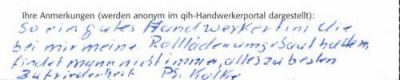 Ihre Anmerkungen (werden anonym im qih-Handwerkerportal dargestellt):
So ein gutes Handwerkerteam die
bei mir meine Rollläden umgebaut haben,
findet mann nicht immer, alles zu besten
Zufriedenheit Ps.